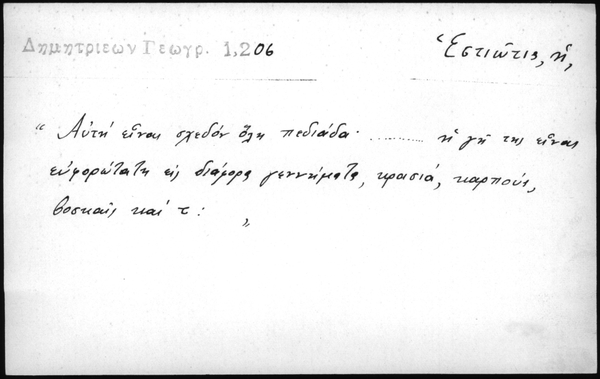 Δημητριεων Γεωγρ. 1,206
Ἑστιῶτις, ἡ,
„ Αὐτὴ εἶναι σχεδὸν ὅλη πεδιάδα· .......... ἡ γῆ της εἶναι
εὐφορώτατη εἰς διάφορα γεννήματα, κρασιά, καρπούς,
βοσκαῖς καὶ τ :
„